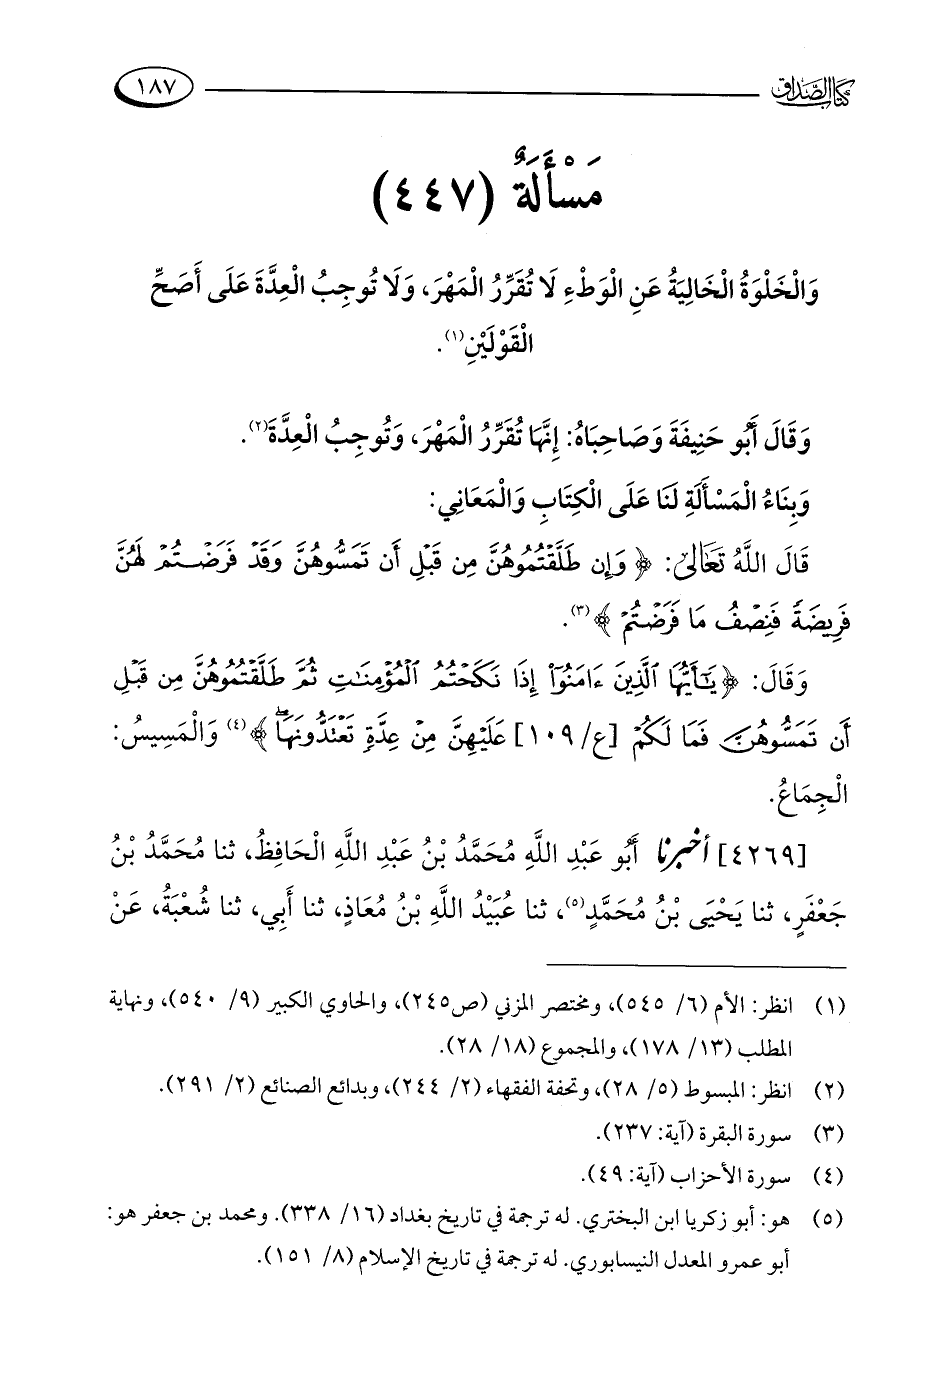 كتاب الصداق ١٨٧
مَسْأَلَةٌ (٤٤٧)
وَالْخَلْوَةُ الْخَالِيَةُ عَنِ الْوَطْءِ لَا تُقَرِّرُ الْمَهْرَ، وَلَا تُوجِبُ الْعِدَّةَ عَلَى أَصَحِّ
الْقَوْلَيْنِ(١).
وَقَالَ أَبُو حَنِيفَةَ وَصَاحِبَاهُ: إِنَّهَا تُقَرِّرُ الْمَهْرَ، وَتُوجِبُ الْعِدَّةَ(٢).
وَبِنَاءُ الْمَسْأَلَةِ لَنَا عَلَى الْكِتَابِ وَالْمَعَانِي:
قَالَ اللَّهُ تَعَالَى: ﴿ وَإِن طَلَّقْتُمُوهُنَّ مِن قَبْلِ أَن تَمَسُّوهُنَّ وَقَدْ فَرَضْتُمْ لَهُنَّ
فَرِيضَةً فَنِصْفُ مَا فَرَضْتُمْ ﴾(٣).
وَقَالَ: ﴿ يَٰٓأَيُّهَا ٱلَّذِينَ ءَامَنُوٓا۟ إِذَا نَكَحْتُمُ ٱلْمُؤْمِنَٰتِ ثُمَّ طَلَّقْتُمُوهُنَّ مِن قَبْلِ
أَن تَمَسُّوهُنَّ فَمَا لَكُمْ [ع/ ١٠٩] عَلَيْهِنَّ مِنْ عِدَّةٍ تَعْتَدُّونَهَا ﴾(٤) وَالْمَسِيسُ:
الْجِمَاعُ.
[٤٢٦٩] أخبرنا أَبُو عَبْدِ اللَّهِ مُحَمَّدُ بْنُ عَبْدِ اللَّهِ الْحَافِظُ، ثنا مُحَمَّدُ بْنُ
جَعْفَرٍ، ثنا يَحْيَى بْنُ مُحَمَّدٍ(٥)، ثنا عُبَيْدُ اللَّهِ بْنُ مُعَاذٍ، ثنا أَبِي، ثنا شُعْبَةُ، عَنْ
(١) انظر: الأم (٦/ ٥٤٥)، ومختصر المزني (ص٢٤٥)، والحاوي الكبير (٩/ ٥٤٠)، ونهاية
المطلب (١٣/ ١٧٨)، والمجموع (١٨/ ٢٨).
(٢) انظر: المبسوط (٥/ ٢٨)، وتحفة الفقهاء (٢/ ٢٤٤)، وبدائع الصنائع (٢/ ٢٩١).
(٣) سورة البقرة (آية: ٢٣٧).
(٤) سورة الأحزاب (آية: ٤٩).
(٥) هو: أبو زكريا ابن البختري. له ترجمة في تاريخ بغداد (١٦/ ٣٣٨). ومحمد بن جعفر هو:
أبو عمرو المعدل النيسابوري. له ترجمة في تاريخ الإسلام (٨/ ١٥١).